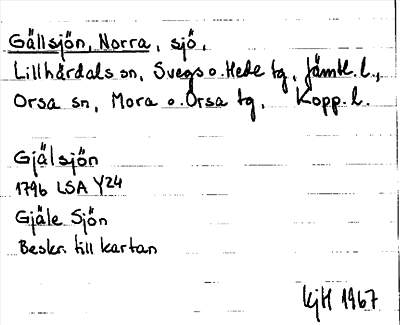 Gällsjön, Norra, sjö,
Lillhärdals sn, Svegs o. Hede tg, Jämtl. l.,
Orsa sn, Mora o. Orsa tg, Kopp. l.
Gjälsjön
1796 LSA Y24
Gjäle Sjön
Beskr. till kartan
KjH 1967